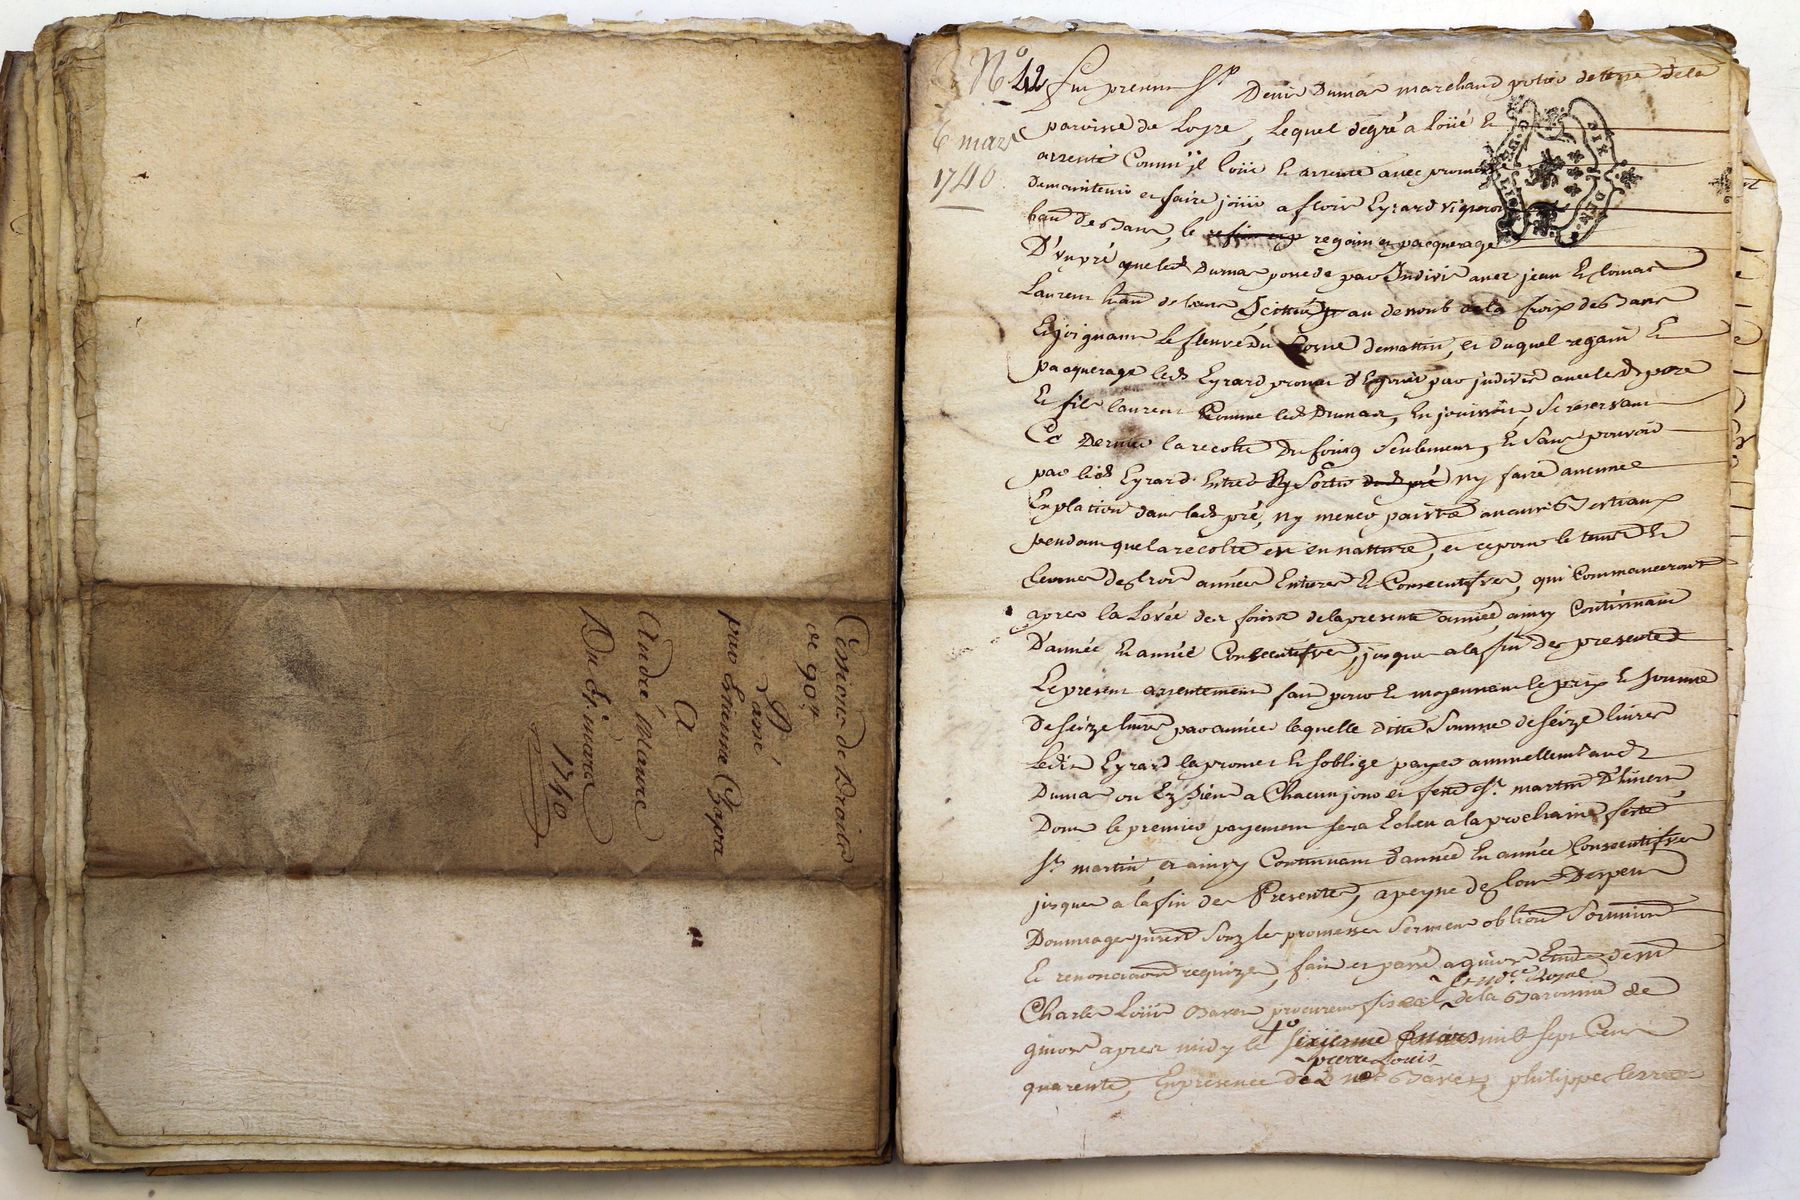 Cession de Droits
de 90#
Passé
par Etienne Chapra
A
André Maure
Du 4e mars
1740
No 42
6 mars
1740
Fut present Sr Denis Dumas marchand potier de terre de la
paroisse de Loyre, Lequel de gré a Loüé Et
arrenté Comm'jl loüe Et arrente avec promesse
De maintenir et faire joüir a Eyrard vigneron
le regaim et pacquerage
D'un pré que led Dumas possede par Indivis avec jean Et tomas
Laurent au dessoub de la Croix de
Et joignant Le fleuve Du de matin, et duquel regain Et
pacquerage led Eyrard promet par jndivis avec lesd pere
Et fils laurent Comme led Dumas, En Se reservant
Ce Dernier la recolte Du foing Seulement, Et Sans pouvoir
par led Eyrard Entrer Ny Sortir dud pré ny faire aucunes
dans led pré, ny mener paistre aucuns Bestiaux
pendant que la recolte est en nature, et ce pour le temps Et
terme de trois années Entieres Et Consecutifves, qui Commanceront
apres la Levée des foins de la presente année, ainsy Continuant
D'année En année Consecutifves, jusques a la fin des presentes
Le present arrentement fait pour Et moyennant le prix Et somme
De seize livres par année laquelle ditte Somme de seize livres
Ledit Eyrard la promet Et s'oblige payer annuellement aud
Dumas ou Es Siens a Chacun jour et feste St martin D'hivert
Dont le premier payement sera Echeu a la prochaine feste
St martin, et ainsy Continuant d'année En année Consecutifves
jusques a la fin des Presentes, a peyne de tous Despens
Dommages jnterest Souz les promesses Serment obliôn Soumission
Et renonciaôns requizes, fait et passé a givors Etude de
Charles Loüis Bavet procureur fiscal & nore Royal de la Baronnie de
givors apres midy le sixieme mars mil sept Cent
quarente, En presence de pierre Louis Bavet, philippe